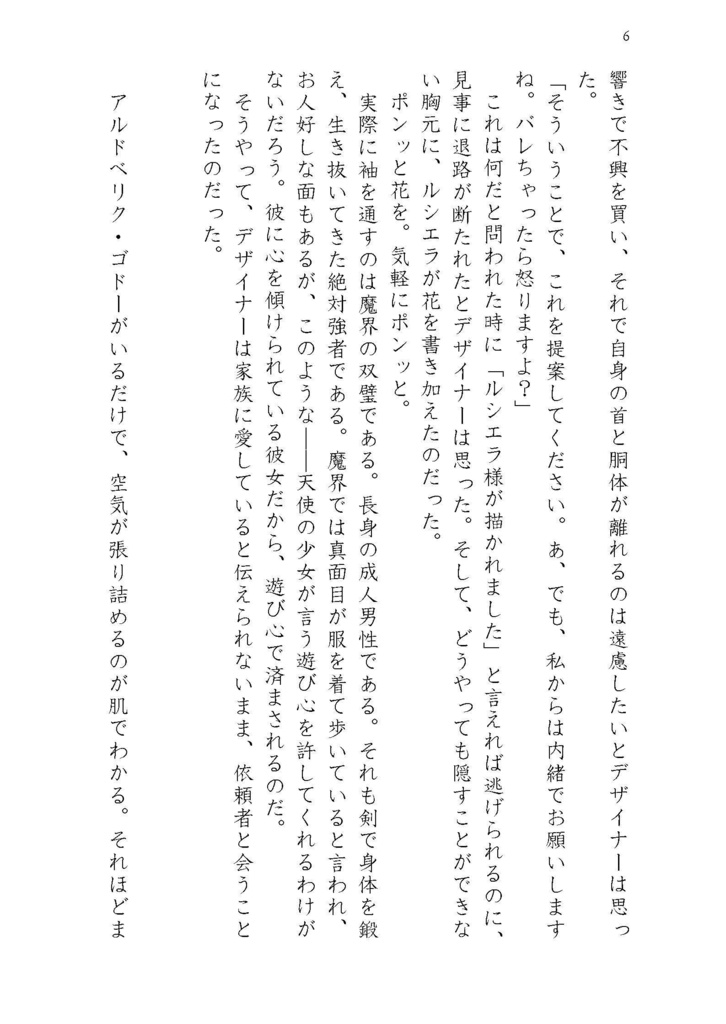 6
響きで不興を買い、それで自身の首と胴体が離れるのは遠慮したいとデザイナーは思っ
た。
「そういうことで、これを提案してください。あ、でも、私からは内緒でお願いします
ね。バレちゃったら怒りますよ？」
これは何だと問われた時に「ルシエラ様が描かれました」と言えれば逃げられるのに、
見事に退路が断たれたとデザイナーは思った。そして、どうやっても隠すことができな
い胸元に、ルシエラが花を書き加えたのだった。
ポンッと花を。気軽にポンッと。
実際に袖を通すのは魔界の双璧である。長身の成人男性である。それも剣で身体を鍛
え、生き抜いてきた絶対強者である。魔界では真面目が服を着て歩いていると言われ、
お人好しな面もあるが、このような――天使の少女が言う遊び心を許してくれるわけが
ないだろう。彼に心を傾けられている彼女だから、遊び心で済まされるのだ。
そうやって、デザイナーは家族に愛していると伝えられないまま、依頼者と会うこと
になったのだった。
アルドベリク・ゴドーがいるだけで、空気が張り詰めるのが肌でわかる。それほどま